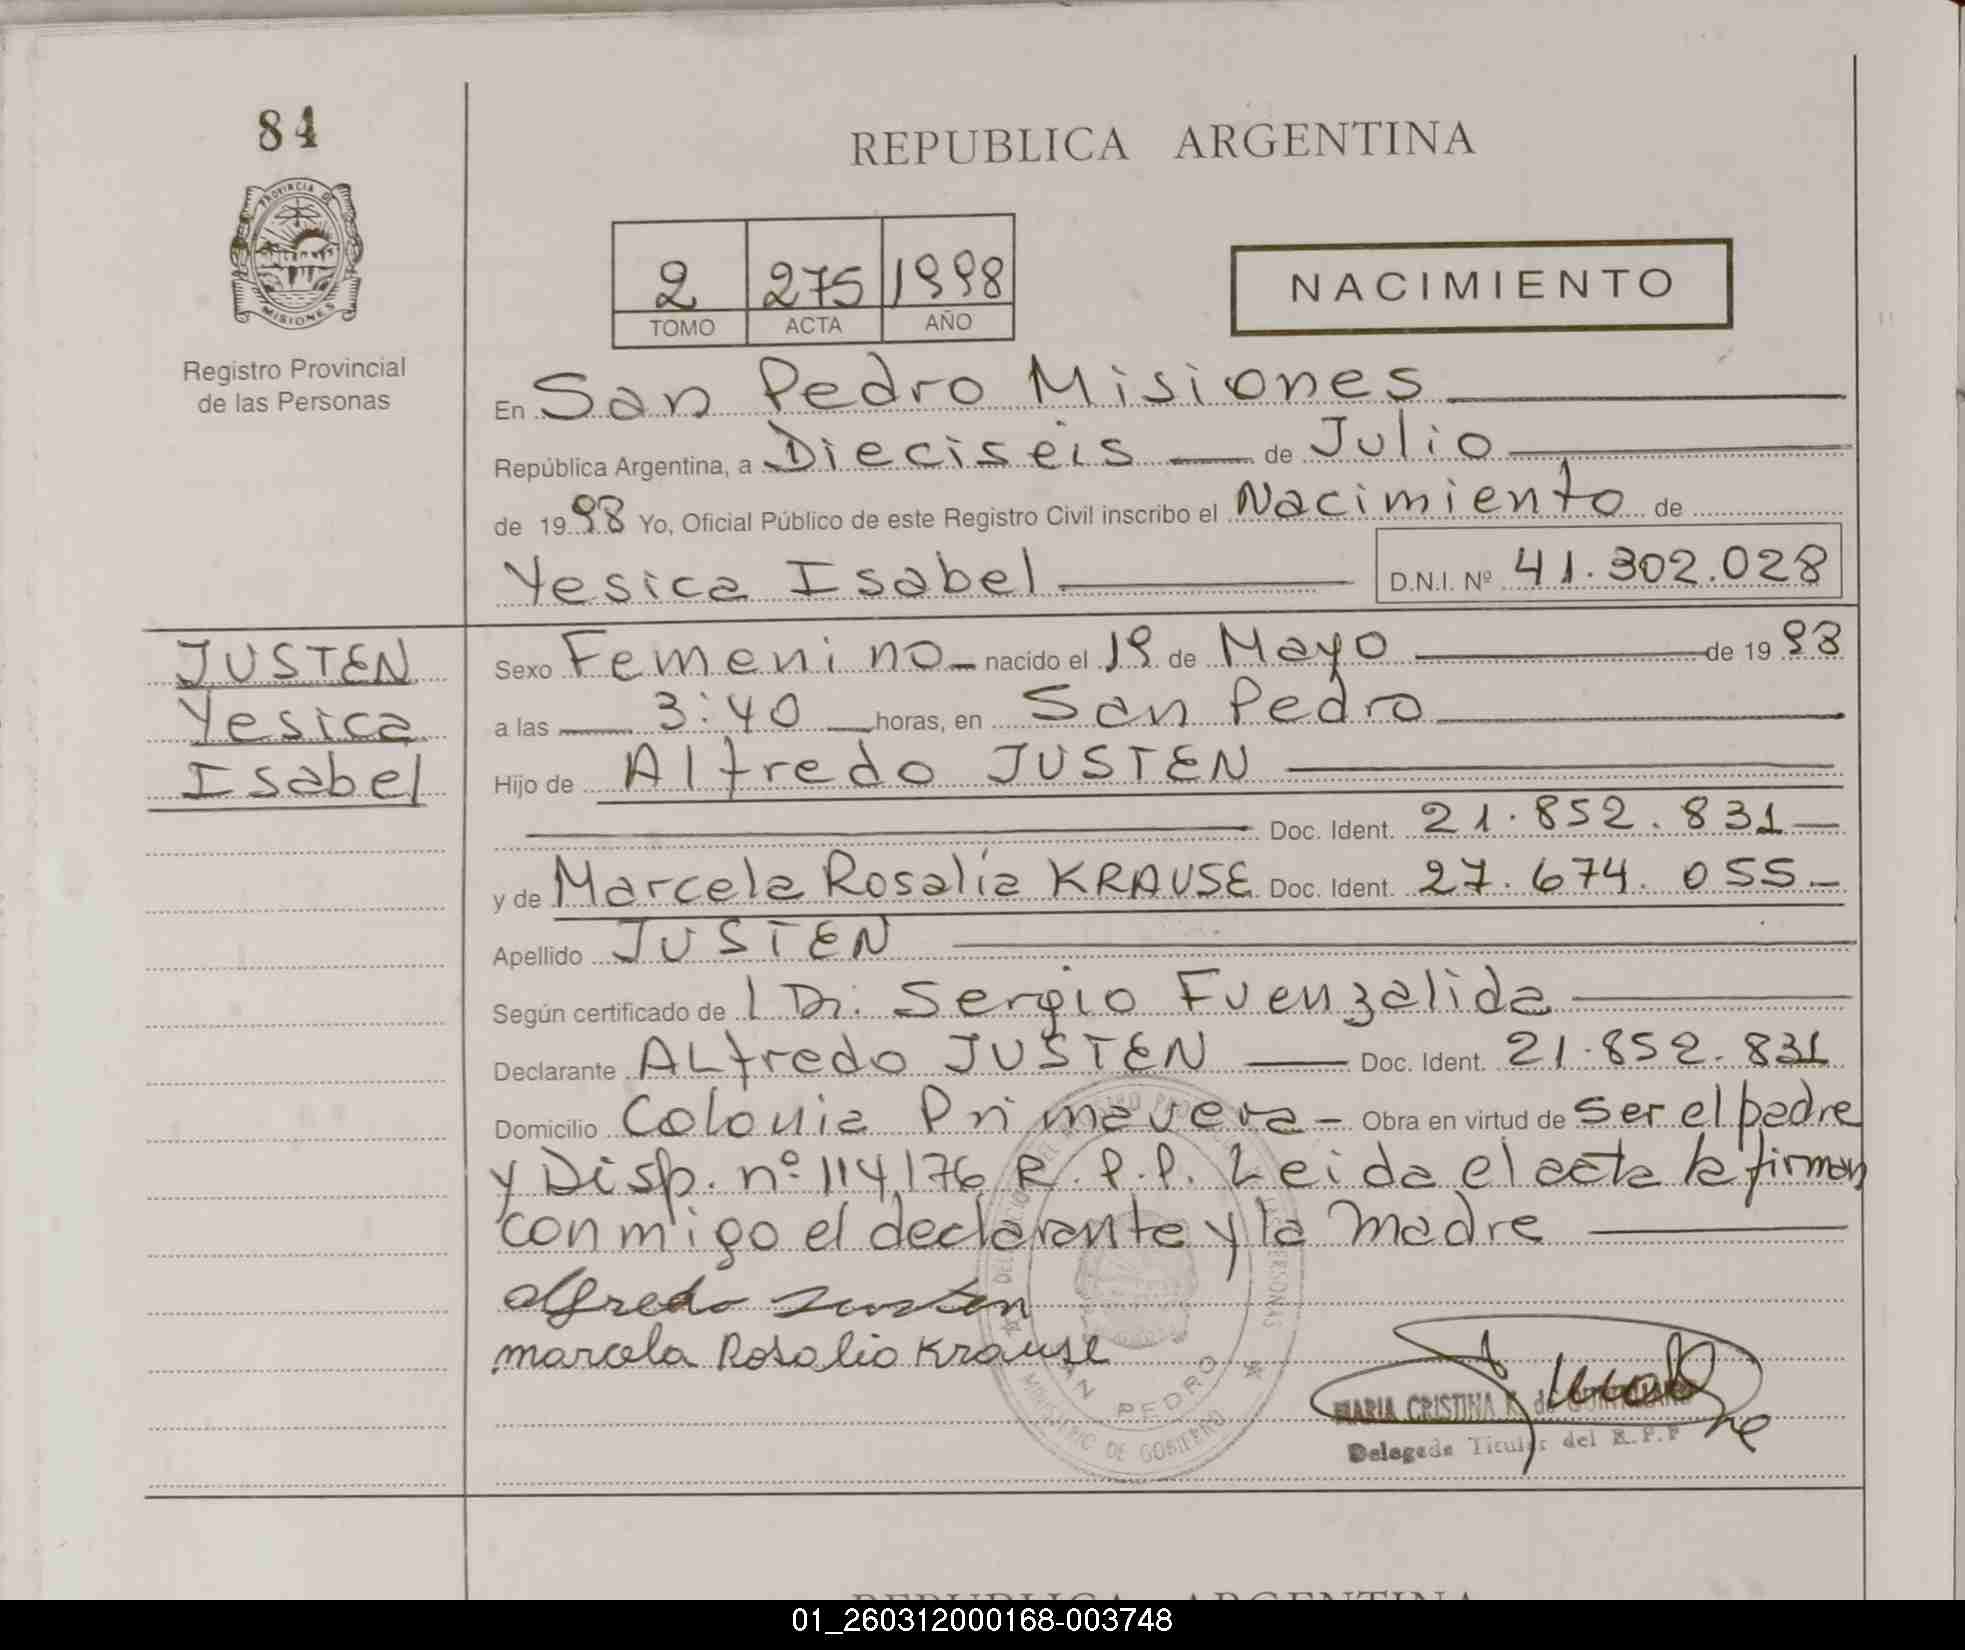 84
PROVINCIA DE
MISIONES
Registro Provincial
de las Personas
REPUBLICA ARGENTINA
2 275 1998
TOMO ACTA AÑO
NACIMIENTO
En San Pedro Misiones
República Argentina, a Dieciséis de Julio
de 1998 Yo, Oficial Público de este Registro Civil inscribo el Nacimiento de
Yesica Isabel D.N.I. Nº 41.302.028
JUSTEN
Yesica
Isabel
Sexo Femenino nacido el 19 de Mayo de 1998
a las 3:40 horas, en San Pedro
Hijo de Alfredo JUSTEN
Doc. Ident. 21.852.831
y de Marcela Rosalía KRAUSE Doc. Ident. 27.674.055
Apellido JUSTEN
Según certificado de l Dr. Sergio Fuenzalida
Declarante ALfredo JUSTEN Doc. Ident. 21.852.831
Domicilio Colonia Primavera - Obra en virtud de ser el padre
y Disp. nº 114/76 R.P.P. Leida el acta la firman
conmigo el declarante y la madre
alfredo Justen
marcela Rosalia Krause
SAN PEDRO
MINISTERIO DE GOBIERNO
MARIA CRISTINA K. de
Delegada Titular del R.P.P
REPUBLICA ARGENTINA
01_260312000168-003748